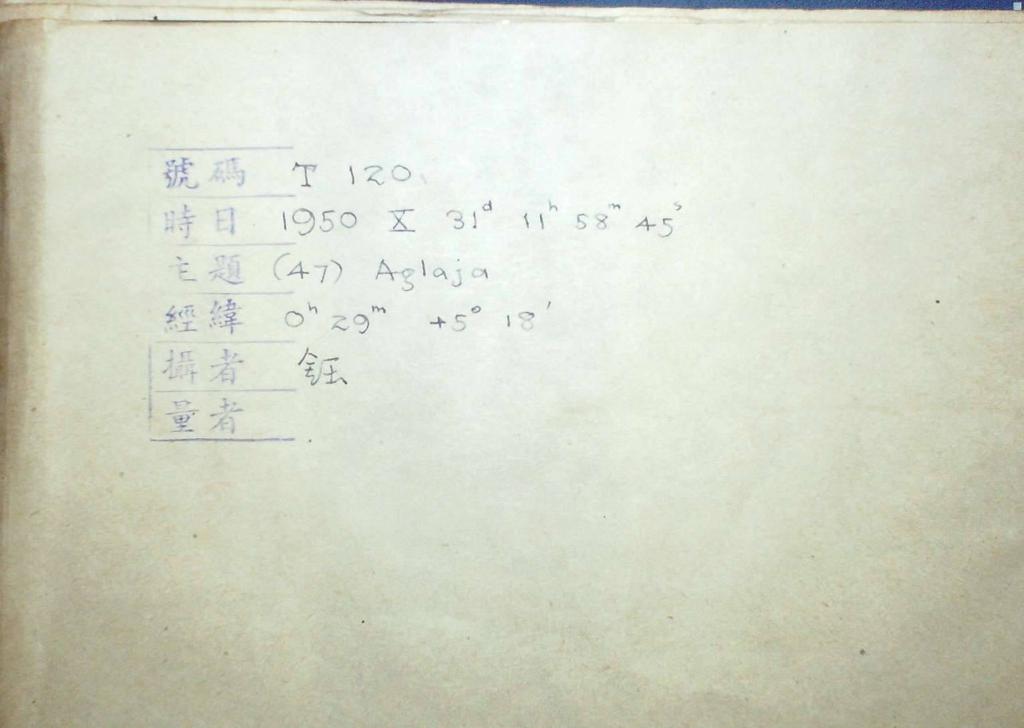 號碼 T 120
時日 1950 X 31ᵈ 11ʰ 58ᵐ 45ˢ
主題 (47) Aglaja
經緯 0ʰ 29ᵐ +5° 18′
攝者 鈺
量者